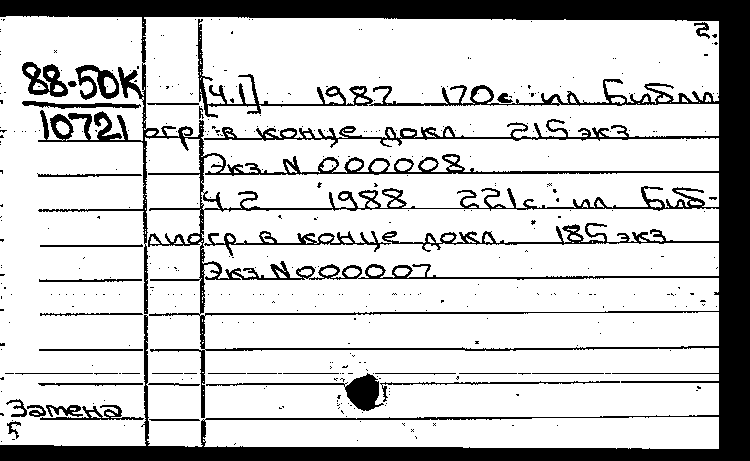 2.
88-50К
10721
[Ч.1]. 1987. 170с.: ил. Библи
огр. в конце докл. 215 экз.
Экз. N 000008.
Ч.2 1988. 221с.: ил. Биб-
лиогр. в конце докл. 185 экз.
Экз. N 000007.
Замена
5